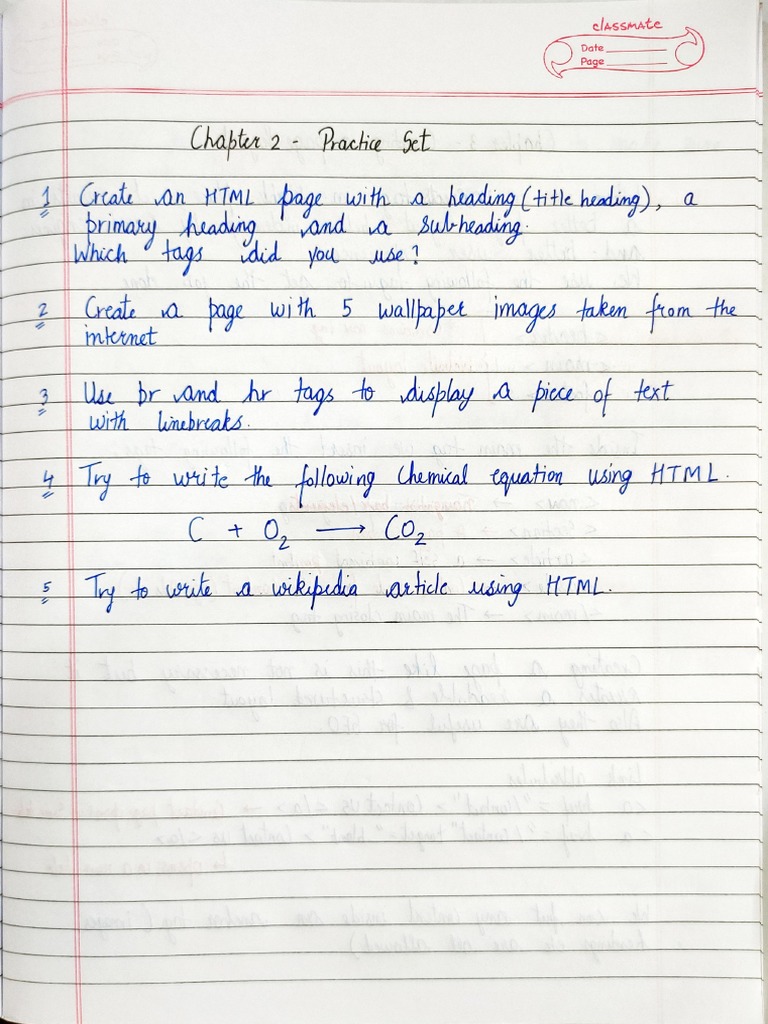 classmate
Date
Page
Chapter 2 - Practice Set
1 Create an HTML page with a heading (title heading), a
primary heading and a subheading.
Which tags did you use?
2 Create a page with 5 wallpaper images taken from the
internet
3 Use br and hr tags to display a piece of text
with linebreaks.
4 Try to write the following Chemical equation using HTML.
C + O₂ ⟶ CO₂
5 Try to write a wikipedia article using HTML.